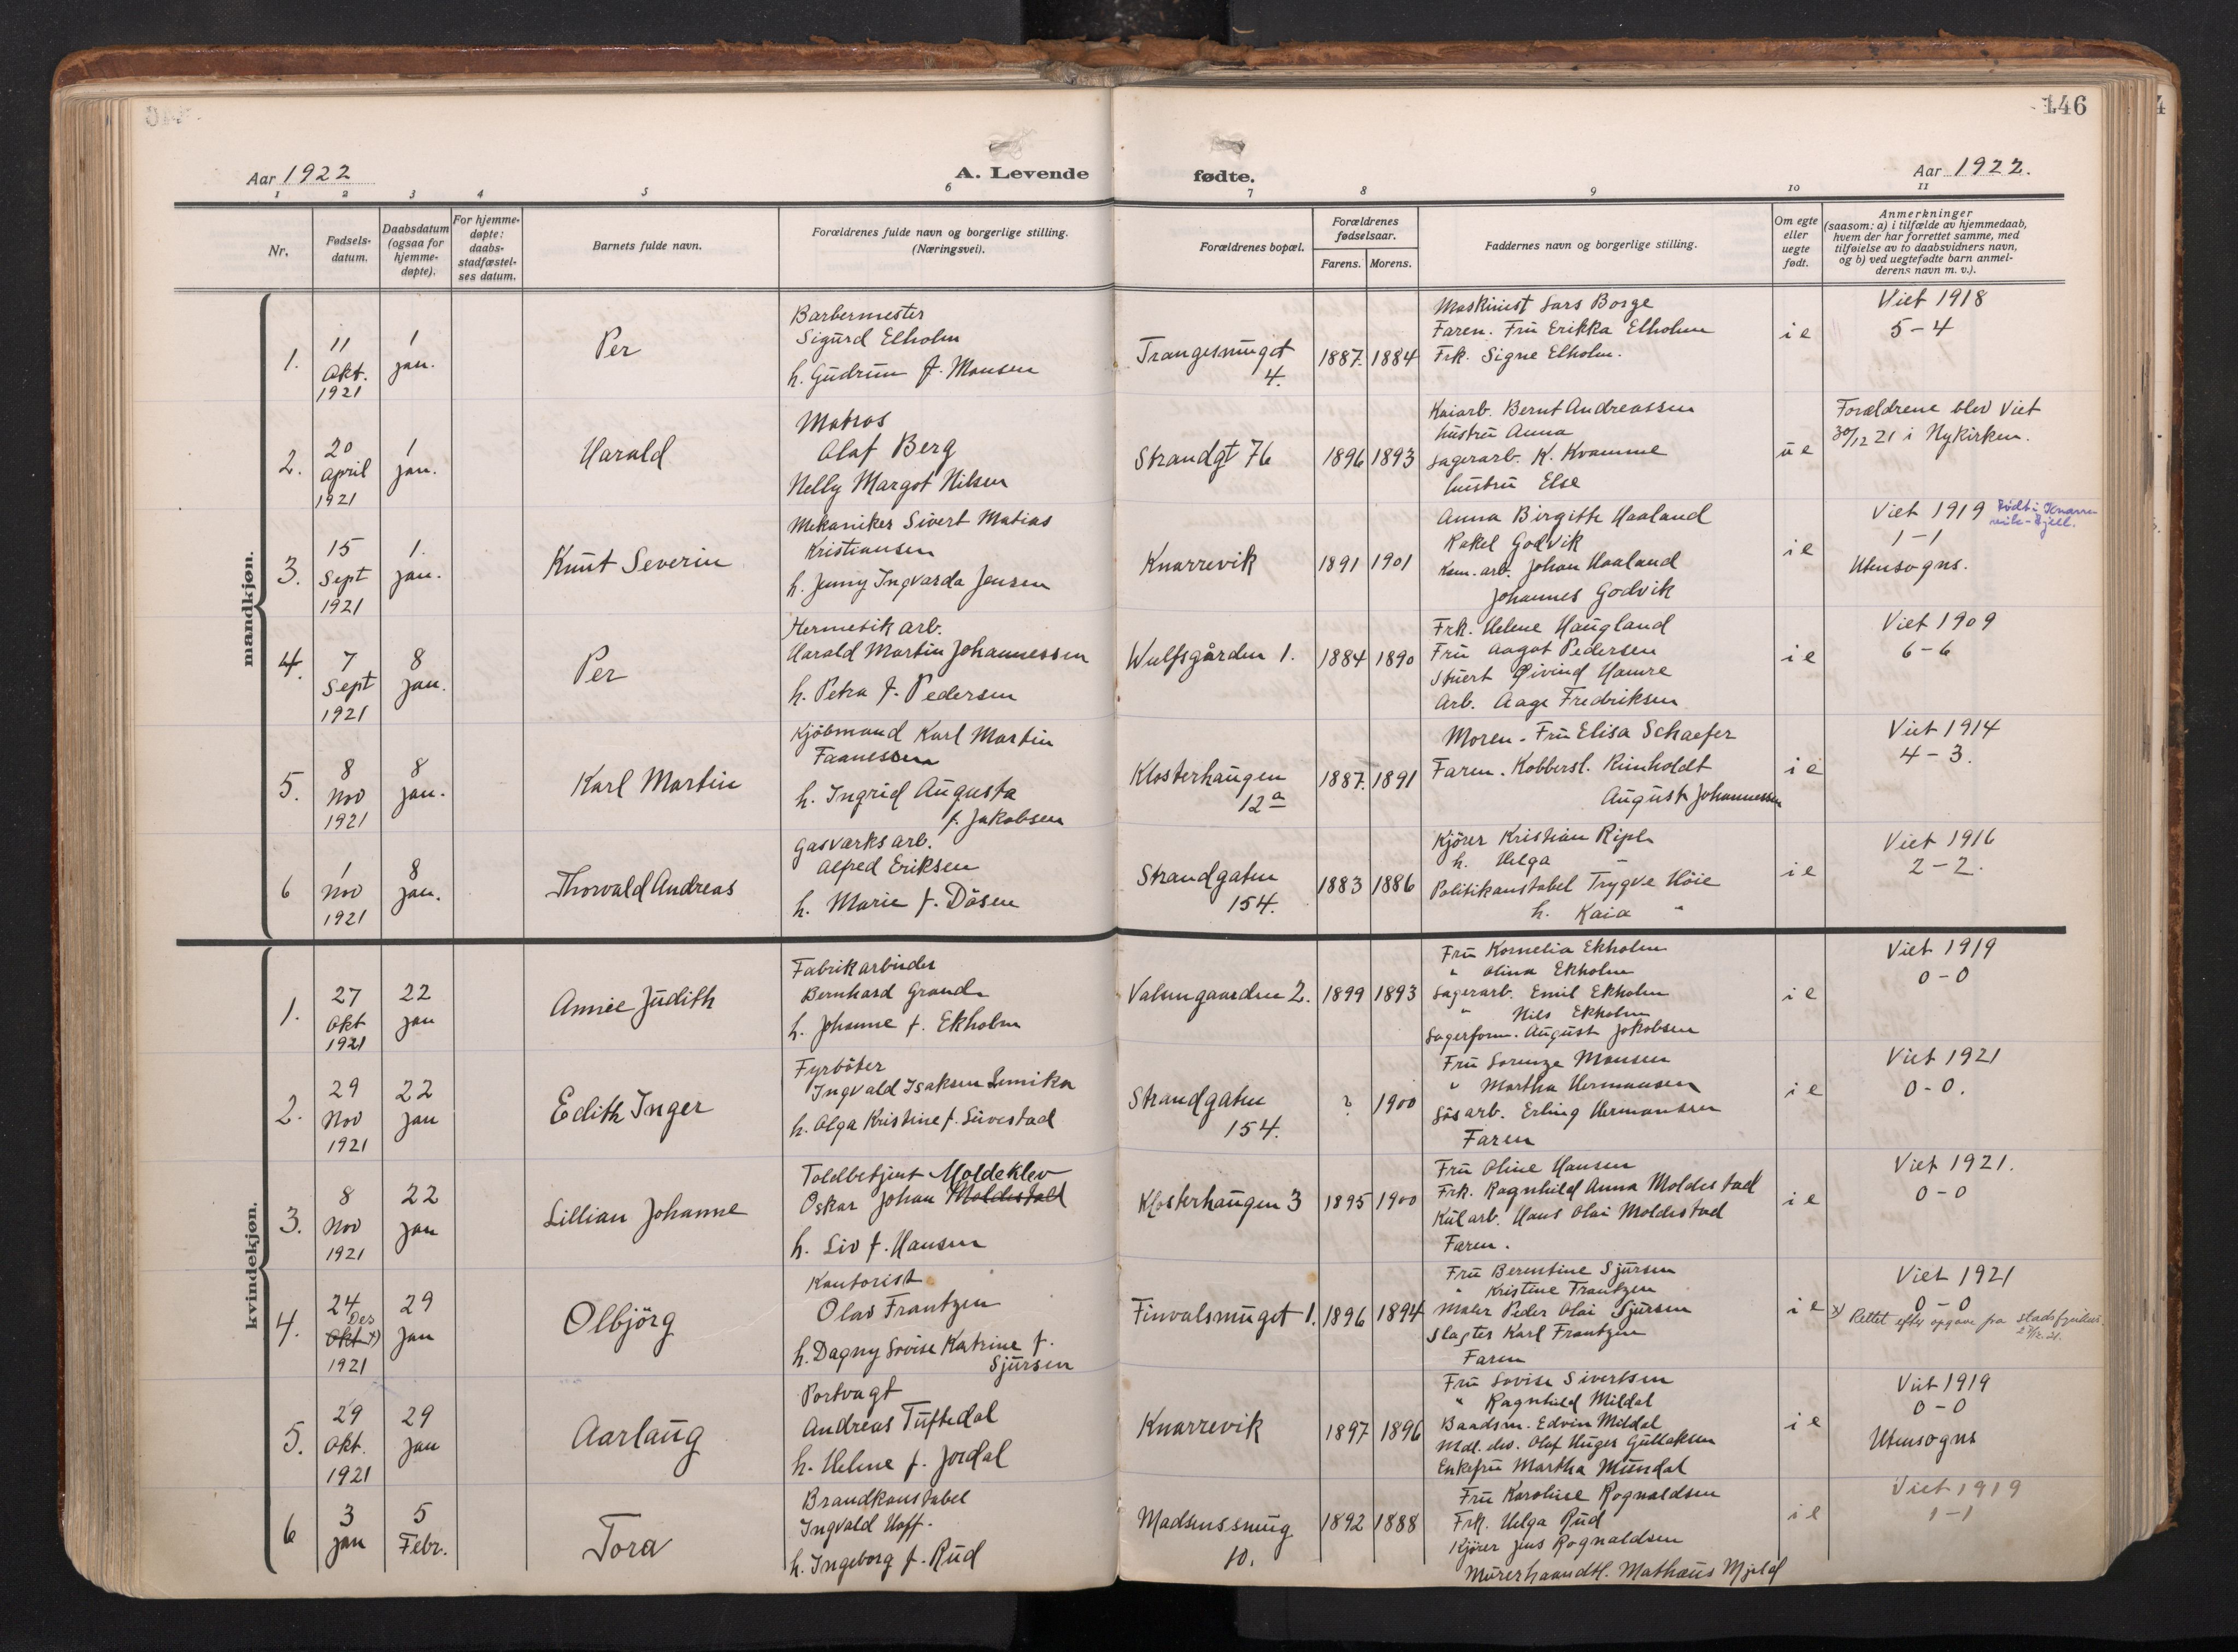 146
Aar 1922
A. Levende
fødte.
Aar 1922.
1 2 3 4 5 6 7 8 9 10 11
Nr.
Fødsels-
datum.
Daabsdatum
(ogsaa for
hjemme-
døpte).
For hjemme-
døpte:
daabs-
stadfæstel-
ses datum.
Barnets fulde navn.
Forældrenes fulde navn og borgerlige stilling.
(Næringsvei).
Forældrenes bopæl.
Forældrenes
fødselsaar.
Farens. Morens.
Faddernes navn og borgerlige stilling.
Om egte
eller
uegte
født.
Anmerkninger
(saasom: a) i tilfælde av hjemmedaab,
hvem der har forrettet samme, med
tilføielse av to daabsvidners navn,
og b) ved uegtefødte barn anmel-
derens navn m. v.).
mandkjøn.
1.
11
Okt.
1921
1
jan.
Per
Barbermester
Sigurd Elholm
h. Gudrun f. Monsen
Trangesmuget
4.
1887. 1884
Maskinist Lars Borge
Faren. Fru Erikka Elholm
Frk. Signe Elholm.
i e
Viet 1918
5-4
2.
20
april
1921
1
jan.
Harald
Matros
Olaf Berg
Nelly Margot Nilsen
Strandgt 76
1896 1893
Kaiarb. Bernt Andreassen
hustru Anna
Lagerarb. K. Kvamme
hustru Else
u e
Forældrene blev viet
30/12 21 i Nykirken.
3.
15
Sept
1921
1.
jan.
Knut Severin
Mekaniker Sivert Matias
Kristiansen
h. Jenny Ingvarda Jensen
Knarrevik
1891 1901
Anna Birgitte Haaland
Rakel Godvik
Kem. arb. Johan Haaland
Johannes Godvik
i e
Viet 1919
Født i Knarre-
vik - Fjell.
1-1
Utensogns.
4.
7
Sept
1921
8
jan.
Per
Hermetik arb.
Harald Martin Johannessen
h. Petra f. Pedersen
Wulfsgården 1.
1884 1890
Frk. Helene Haugland
Fru Aagot Pedersen
Stuert Øivind Hamre
Arb. Aage Fredriksen
i e
Viet 1909
6-6
5.
8
Nov
1921
8
jan.
Karl Martin
Kjöbmand Karl Martin
Faanessen
h. Ingrid Augusta
f. Jakobsen
Klosterhaugen
12 a
1887. 1891
Moren. Fru Elisa Schaefer
Faren. Kobbersl. Reinholdt
August Johannessen
i e
Viet 1914
4-3.
6
1
Nov
1921
8
jan.
Thorvald Andreas
Gasværks arb.
Alfred Eriksen
h. Marie f. Dåsen
Strandgaten
154.
1883 1886
Kjörer Kristian Ripe
h. Helga –
Politikonstabel Trygve Höie
h. Kaia "
i e
Viet 1916
2-2.
kvindekjøn.
1.
27
Okt
1921
22
jan
Annie Judith
Fabrikarbeider
Bernhard Grande
h. Johanne f. Ekholm
2.
1899 1893
Fru Kornelia Ekholm
" Olina Ekholm
Lagerarb. Emil Ekholm
" Nils Ekholm
Lagerform. August Jakobsen
i e
Viet 1919
0-0
2.
29
Nov
1921
22
jan
Edith Inger
Fyrböter
Ingvald Isaksen
h. Olga Kristine f.
Strandgaten
154.
? 1900
Fru Lorenze Monsen
" Martha Hermansen
Løsarb. Erling Hermansen
Faren
i e
Viet 1921
0-0.
3.
8
Nov
1921
22
jan
Lillian Johanne
Toldbetjent Moldeklev
Oskar Johan Moldestad
h. Liv f. Hansen
Klosterhaugen 3
1895 1900
Fru Oline Hansen
Frk. Ragnhild Anna Moldestad
Kularb. Hans Olai Moldestad
Faren.
i e
Viet 1921.
0-0
4.
24
Des
Okt x)
1921
29
jan
Olbjörg
Kontorist
Olav Frantzen
h. Dagny Lovise Katrine f.
Sjursen
Finvalsmuget 1.
1896 1894
Fru Berentine Sjursen
" Kristine Frantzen
Maler Peder Olai Sjursen
Slagter Karl Frantzen
Faren
i e
Viet 1921
0-0
x) Rettet efter opgave fra stadsfysikus.
5.
29
Okt.
1921
29
jan
Aarlaug
Portvagt
Andreas Tuftedal
h. Helene f. Jordal
Knarrevik
1897 1896
Fru Lovise Sivertsen
" Ragnhild Mildal
Baadsm. Edvin Mildal
Olaf Gullaksen
Enkefru Martha Mundal
i e
Viet 1919
0-0
Utensogns
6
3
jan
5
Febr.
Tora
Brandkonstabel
Ingvald Hoff.
h. Ingeborg f. Rud
Madsenssmug
10.
1892 1888
Fru Karoline Rognaldsen
Frk. Helga Rud
Kjörer Jens Rognaldsen
Murerhaandtl. Mathæus Mjeld
i e
Viet 1919
1-1